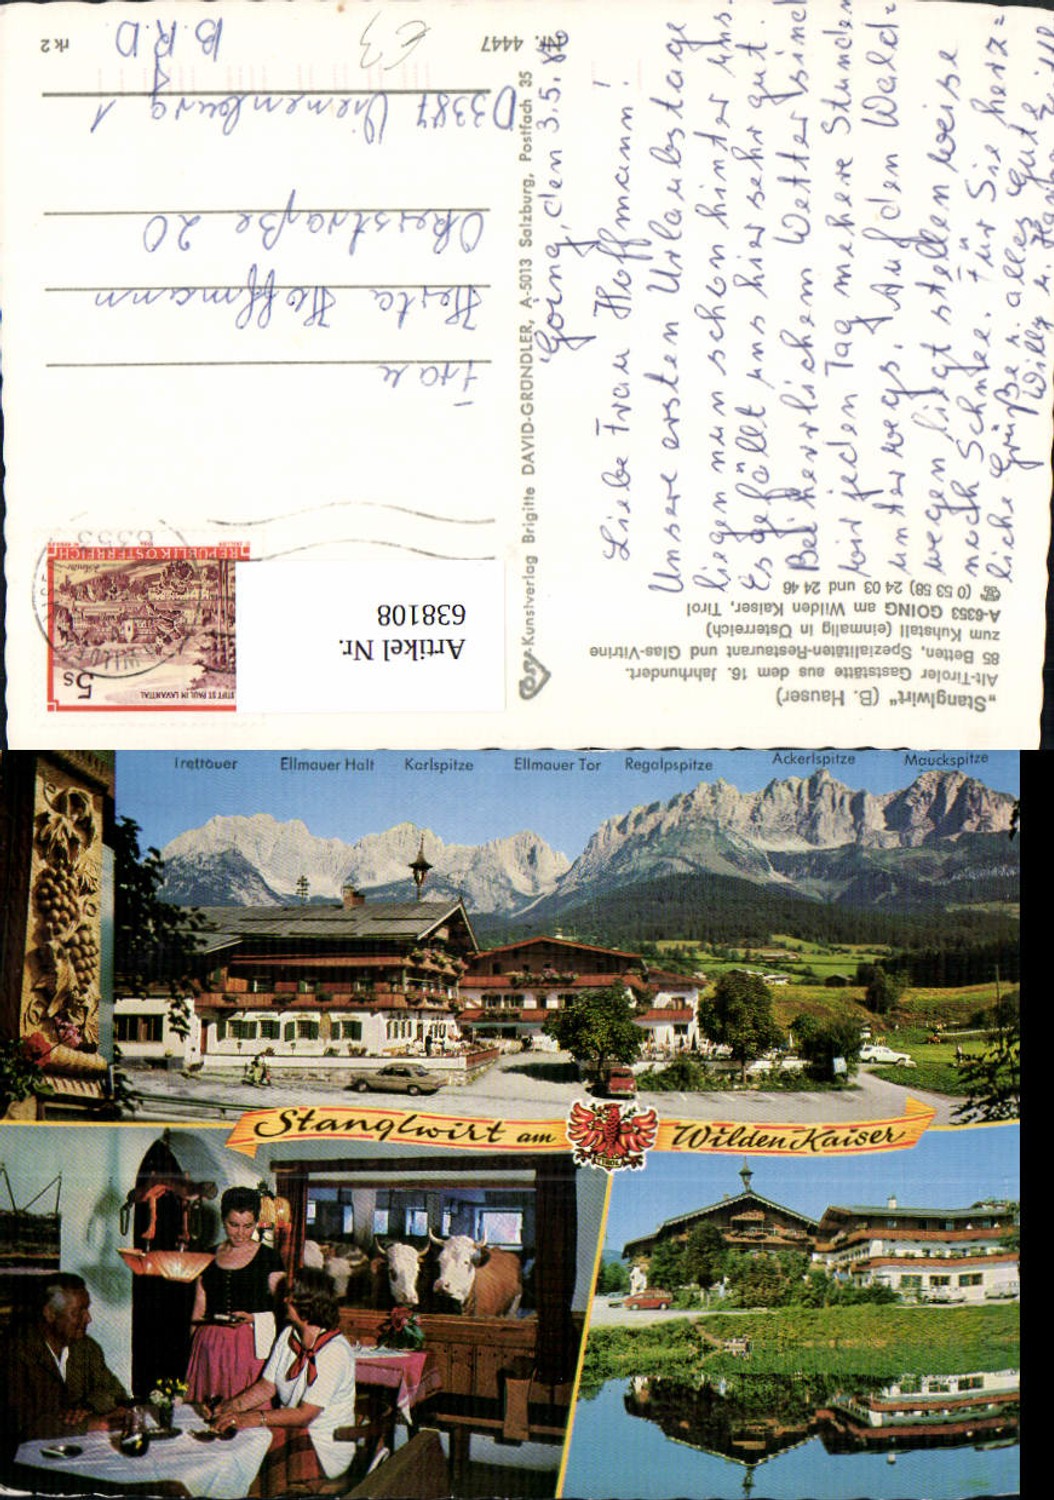 „Stanglwirt“ (B. Hauser)
Alt-Tiroler Gaststätte aus dem 16. Jahrhundert.
85 Betten, Spezialitäten-Restaurant und Glas-Vitrine
zum Kuhstall (einmalig in Österreich)
A-6353 GOING am Wilden Kaiser, Tirol
☏ (0 53 58) 24 03 und 24 46
Going, den 3.5.86
Liebe Frau Hoffmann!
Unsere ersten Urlaubstage
liegen nun schon hinter uns.
Es gefällt uns hier sehr gut.
Bei herrlichem Wetter sind
wir jeden Tag mehere Stunden
unterwegs. Auf den Wald=
wegen liegt stellenweise
noch Schnee. Für Sie herz=
liche Grüße u. alles Gute
Willy u.
Nr. 4447
Kunstverlag Brigitte DAVID-GRÜNDLER, A-5013 Salzburg, Postfach 35
REPUBLIK ÖSTERREICH
5s
STIFT ST. PAUL IM LAVANTTAL
6353
Artikel Nr.
638108
Frau
Herta Hoffmann
Okerstraße 20
D 3387 Vienenburg 1
B.R.D
€3
rk 2
Trettauer Ellmauer Halt Karlspitze Ellmauer Tor Regalpspitze Ackerlspitze Mauckspitze
Stanglwirt am Wilden Kaiser
TIROL